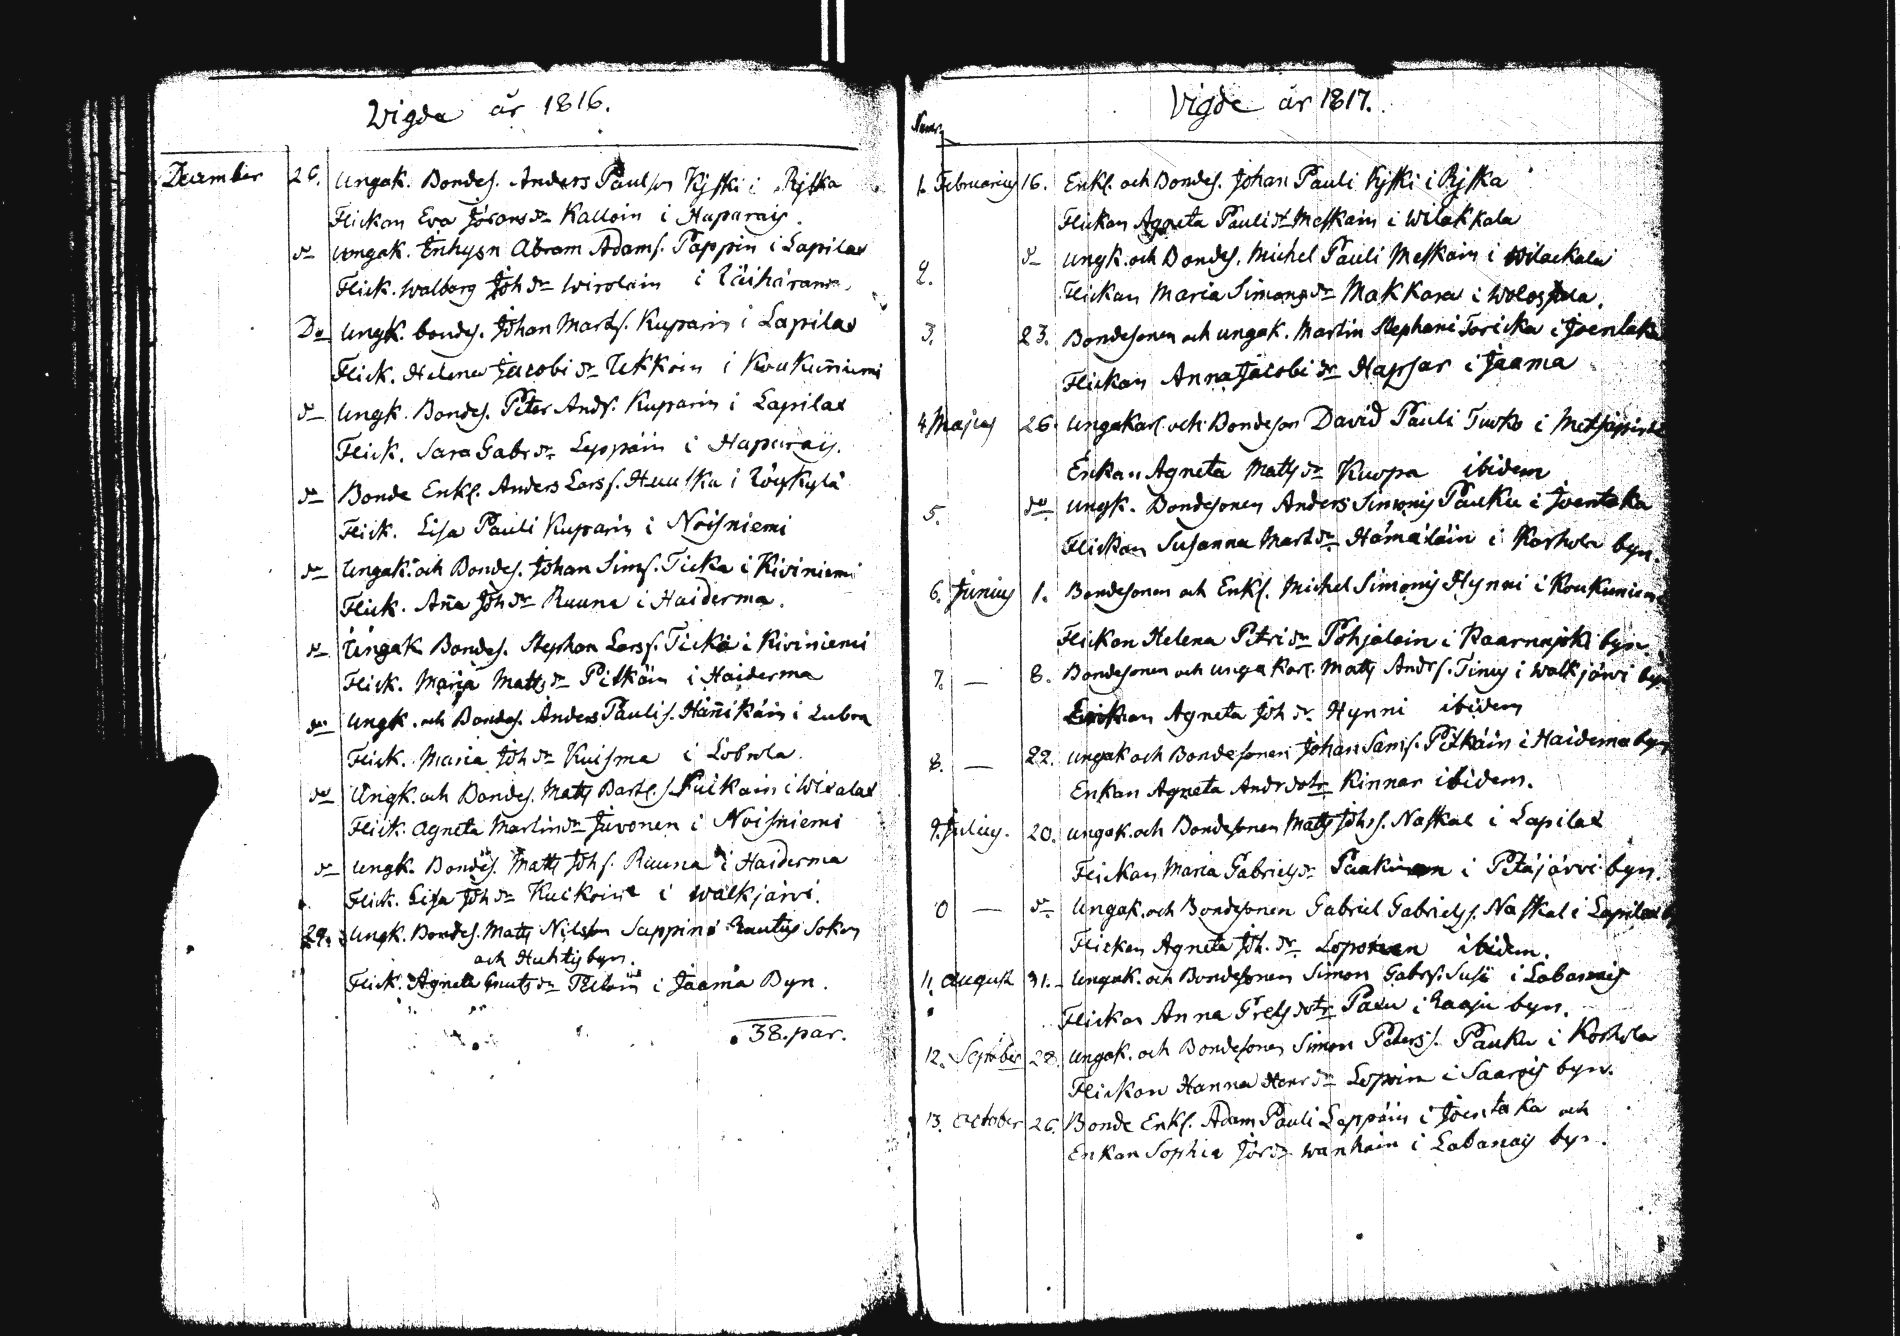 Vigda år 1816.
December 26. Ungak. Bondes. Anders Paulson Kyski i Ryska
Flickan Eva Jörans dr Kalloin i Haparais.
dr Ungak. Inhysn Abram Adams. Pappin i Lapilax
Flick. Walborg Joh dr Wirolain i Räihäranda.
Do Ungk. bondes. Johan Marts. Kuparin i Lapilax
Flick. Helena Jacobi dr Ukkoin i Koukuniemi
dr Ungk. Bondes. Peter Ands. Kuparin i Lapilax
Flick. Sara Gabr dr Leppäin i Haparais.
dr Bonde Enkl. Anders Lars s. Huuska i Röyskylä
Flick. Lisa Pauli Kuparin i Noisniemi
dr Ungak. och Bondes. Johan Sims. Ticka i Kiviniemi
Flick. Aña Joh dr Ruuna i Haiderma.
dr Ungak Bondes. Stephan Lars s. Ticka i Kiviniemi
Flick. Maria Matts dr Pitkäin i Haiderma
dr Ungk. och Bondes. Anders Pauli s. Häñikäin i Lubra
Flick. Maria Joh dr Kuisma i Lobola
dr Ungk. och Bondes. Matts Bartl. s. Kuikain i Wixalax
Flick. Agneta Martins dr Juvonen i Noisniemi
dr Ungk. Bondes. Matts Joh s. Ruuna i Haiderma
Flick. Lisa Joh dr Kuikoin i Walkjärvi.
29. Ungk. Bondes. Matts Nilsson Sappin i Rautus Sokn
och Huhtis byn.
Flick. Agneta Knuts dr i Jaama Byn.
38. par.
Vigde år 1817.
Num.
1. Februarius 16. Enkl. och Bondes. Johan Pauli Kyski i Ryska
Flickan Agneta Pauli dr Meskain i Wilakkala
2. dr Ungk. och Bondes. Michel Pauli Meskain i Wilackala
Flickan Maria Simons dr Makkara i Woloskala.
3. 23. Bondesonen och ungak. Martin Stephani Toricka i Joentaka
Flickan Anna Jacobi dr Hapsar i Jaama
4. Majus 26. Ungakarl och Bondeson David Pauli Tuoko i Metsäpirtti
Enkan Agneta Matts dr Kuopa ibidem
5. do Ungk. Bondesonen Anders Simonis Paukku i Joentaka
Flickan Susanna Mart dr Hämäläin i Korhola byn.
6. Junius 1. Bondesonen och Enkl. Michel Simonis Hynni i Koukuniemi
Flickan Helena Petri dr Pohjalain i Kaarnajoki byn
7. — 8. Bondesonen och unga karl. Matts Andr s. Tinus i Walkjärvi byn
Enkan Agneta Joh dr. Hynni ibidem
8. — 22. Ungak och Bondesonen Johan Sams. Pitkäin i Haiderma byn
Enkan Agneta Andrs dotr Kinnar ibidem.
9. Julius. 20. Ungak. och Bondesonen Matts Johs s. Naskal i Lapilax
Flickan Maria Gabriels dr Paakinen i Petäjärvi byn.
0 — dr Ungak. och Bondesonen Gabriel Gabriels s. Naskal i Lapilax
Flickan Agneta Joh. dr. Loponen ibidem.
11. August 31. Ungak. och Bondesonen Simon Gabr s. Susi i Labanais
Flickan Anna Grels dotr Paxu i Raaju byn.
12. September 28. Ungak. och Bondesonen Simon Peters s. Paukku i Korhola
Flickan Hanna Henr dr Lopoin i Saarois byn.
13. October 26. Bonde Enkl. Adam Pauli Leppäin i Joentaka och
Enkan Sophia Jör dr Wanhain i Labanais byn.